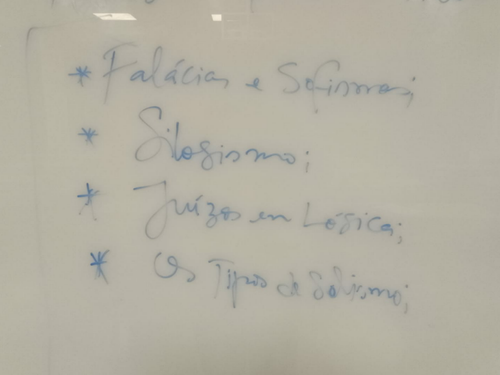 * Falácias e Sofismas;
* Silogismo;
* Juízos em Lógica;
* Os Tipos de